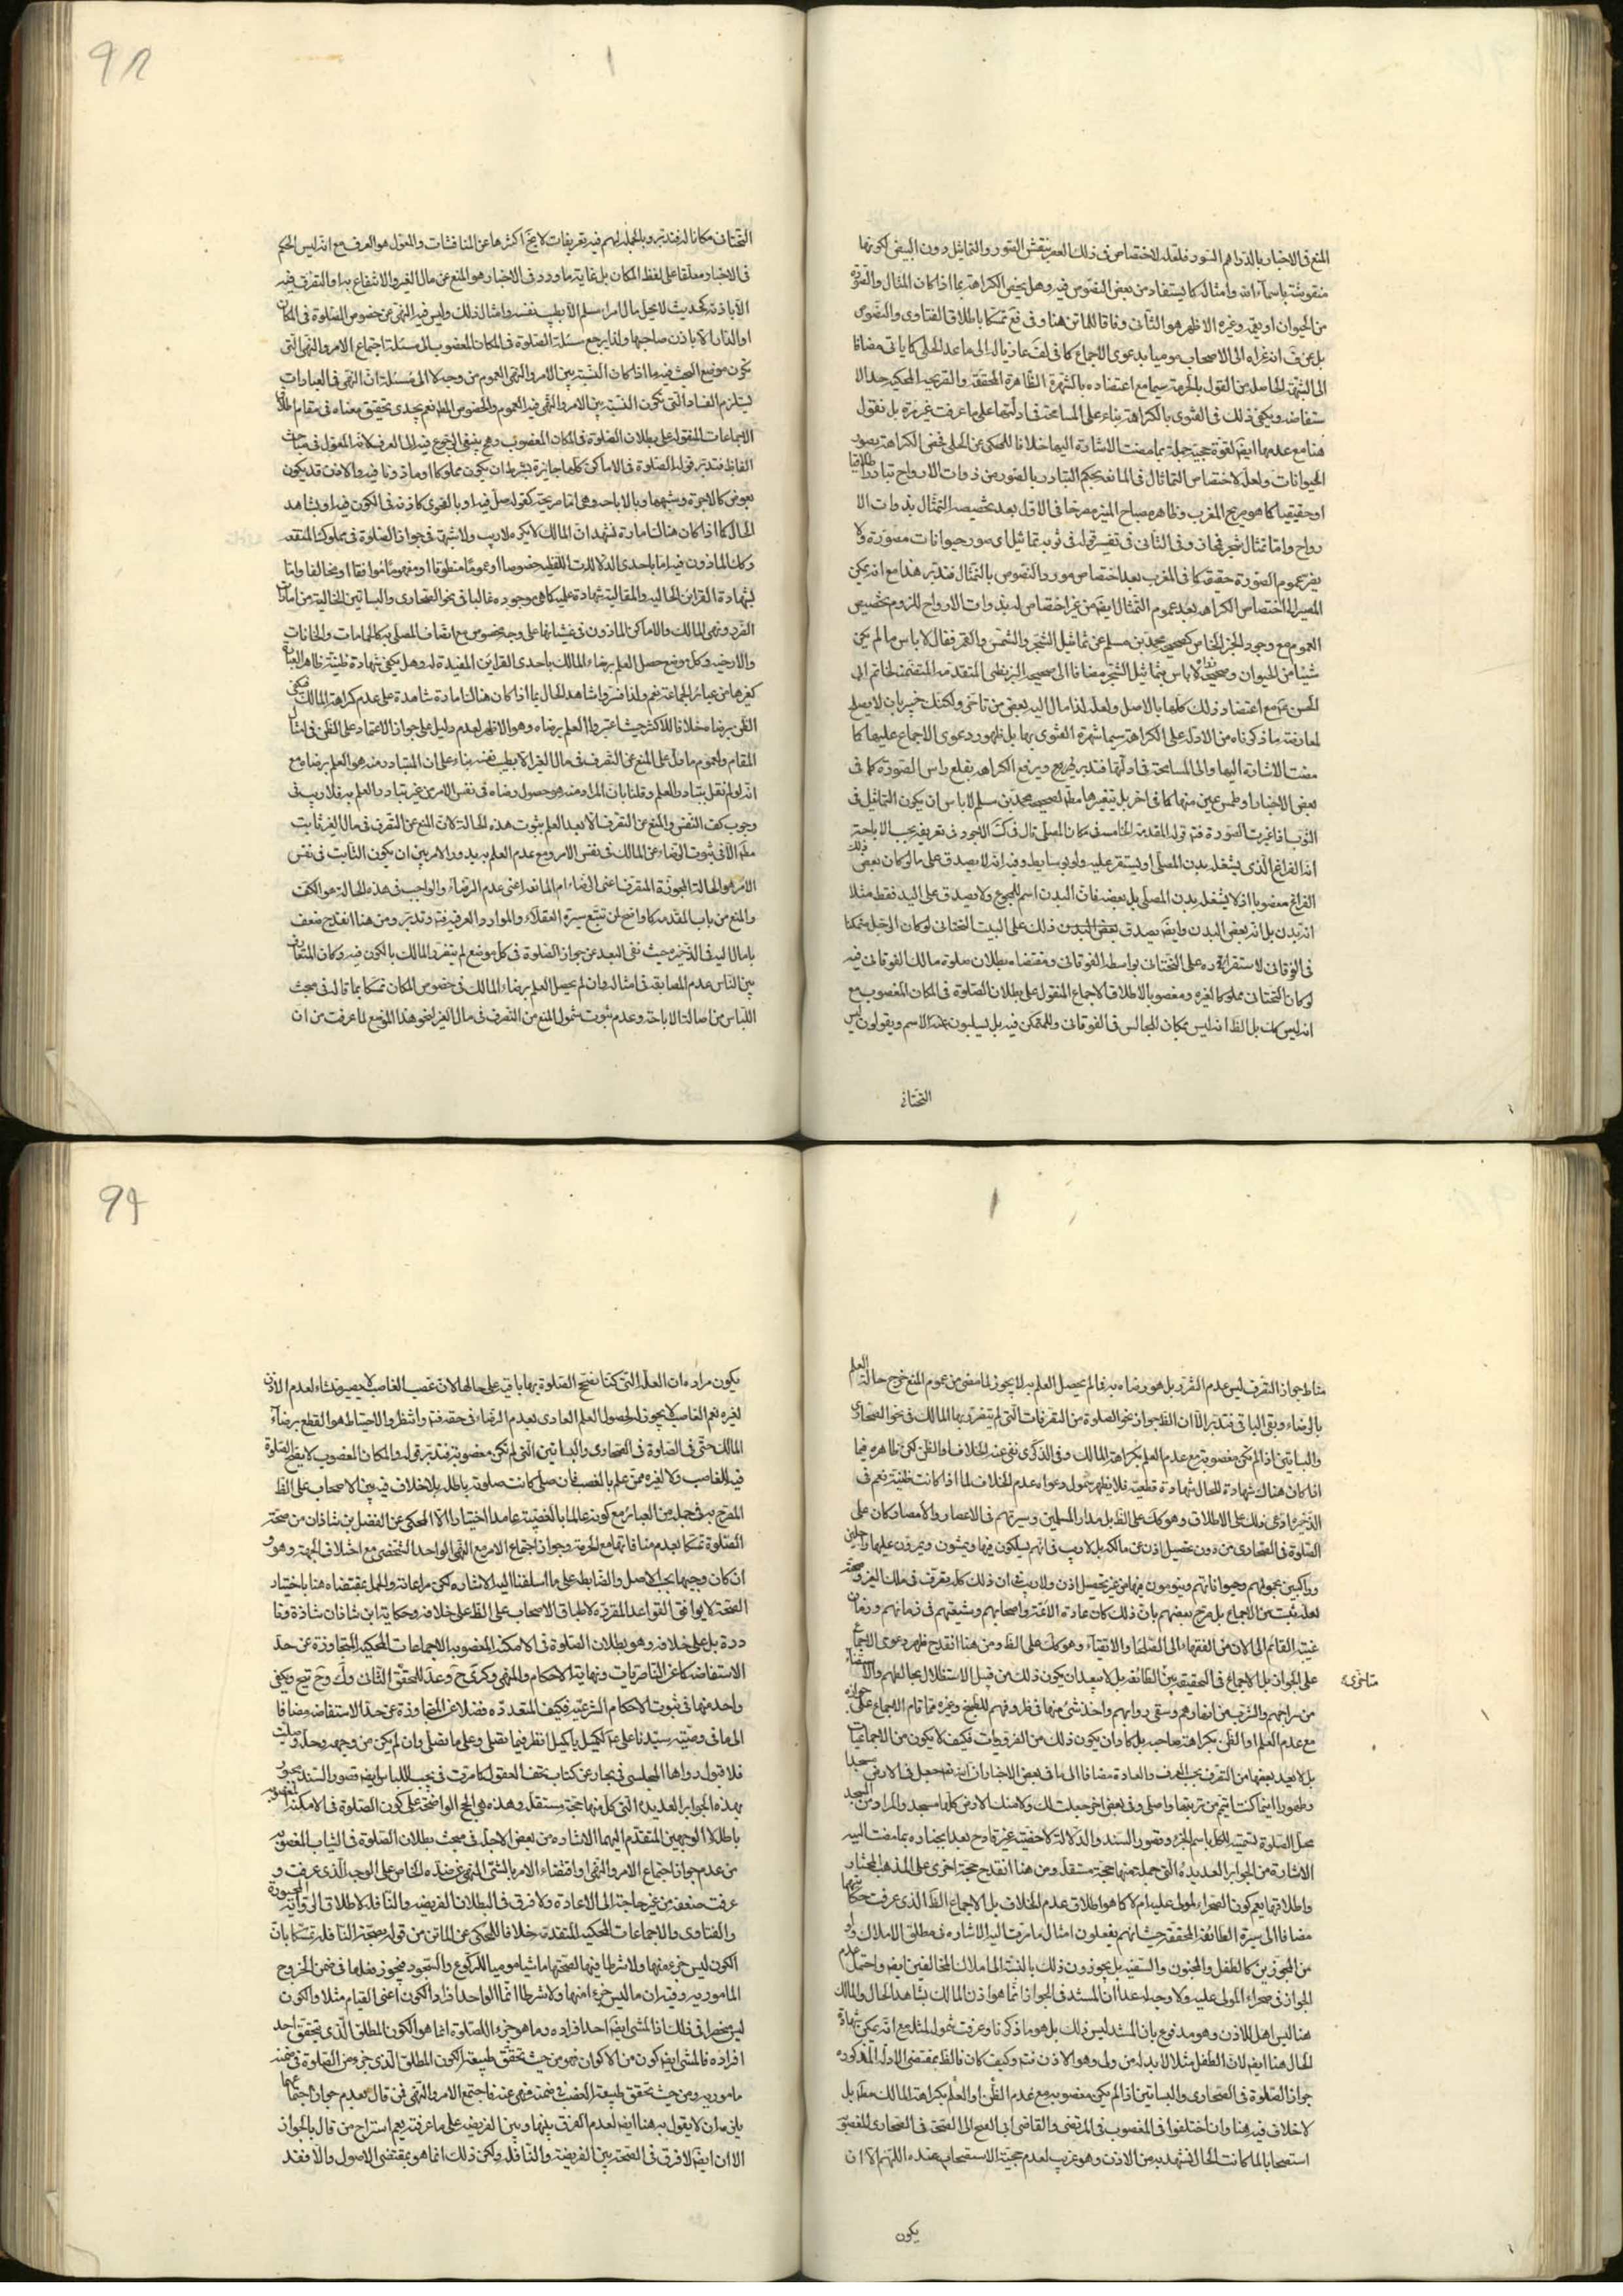 ٩٨
المنع فى الاخبار بالدراهم السود فلعله لاختصاص فى ذلك العصر بنقش الصور والتماثيل دون البيض لكونها
منقوشة باسماء الله وامثاله كما يستفاد من بعض النصوص فيه وهل يخص الكراهة بما اذا كان المثال والصورة
من الحيوان او يعمه وغيره الاظهر هو الثانى وفاقا للماتن هنا وفى فع تمسكا باطلاق الفتاوى والنصوص
بل عن لف انه عزاه الى الاصحاب موميا بدعوى الاجماع كما فى لف عازيا له الى ما عد الحلى كما ياتى مضافا
الى الشبهة الحاصلة من القول بالحرمة سيما مع اعتضاده بالشهرة الظاهرة المحققة والقريحة المحكية حد الا
ستفاضه ويكفى ذلك فى الفتوى بالكراهة بناء على المسامحة فى ادلتها على ما عرفت غير مرة بل نقول
هنا مع عدمها ايضا لقوة حجية جملة بما مضت الاشارة اليها خلافا للمحكى عن الحلى فخص الكراهة بصور
الحيوانات ولعله لاختصاص التماثيل فى المانعه بحكم التبادر بالصور من ذوات الارواح تبادرا اطلاقيا
او حقيقيا كما هو صريح المغرب وظاهر مصباح المنير مصرحا فى الاول بعد تخصيصه التمثال بذوات الا
رواح واما تمثال شجر فمجاز وفى الثانى فى تفسير قوله فى ثوبه تماثيل اى صور حيوانات مصورة ولا
يضر عموم الصورة حقيقة كما فى المغرب بعد اختصاص مورد النصوص بالتمثال فتدبر هذا مع انه يمكن
المصير الى اختصاص الكراهه بعد عموم التمثال ايضا من غير اختصاص له بذوات الارواح للزوم تخصيص
العموم مع وجود الخبر الخاص كصحيح محمد بن مسلم عن تماثيل الشجر والشمس والقمر فقال لا باس ما لم يكن
شيئا من الحيوان وصحيح زرارة لا باس بتماثيل الشجر مضافا الى صحيحه البزنطى المتقدمه المتضمنه لخاتم ابى
الحسن مع اعتضاد ذلك كلها بالاصل ولعله لذا مال اليه بعض من تاخر ولكنك خبير بان لا يصلح
لمعارضة ما ذكرناه من الادلة على الكراهة سيما شهرة الفتوى بها بل ظهور دعوى الاجماع عليها كما
مضت الاشارة اليها والى المسامحة فى ادلتها فتدبر ويرفع الكراهه بقلع راس الصورة كما فى
بعض الاخبار او طمس عين منها كما فى اخر بل بتغييرها مطلقا لصحيحه محمد بن مسلم لا باس ان يكون التماثيل فى
الثوب اذا غيرت الصورة قوله المقدمة الخامسه فى مكان المصلى قال فى اجود فى تعريفه بحسب الاباحة
انه الفراغ الذى يشغله بدن المصلى او يستقر عليه ولو بوسايط وفيه انه لا يصدق على ما لو كان بعض ذلك
الفراغ مغصوبا اذ لا يشغله بدن المصلى بل بعضه فان البدن اسم للمجموع ولا يصدق على اليد فقط مثلا
انه بدن بل انه بعض البدن وايضا يصدق ذلك على البيت التحتانى لو كان الرجل متمكنا
فى الفوقانى لاستقراره على التحتانى بواسطه الفوقانى ومقتضاه بطلان صلوة مالك الفوقانى فيه
لو كان التحتانى مملوكا لغيره ومغصوبا لاطلاق الاجماع المنقول على بطلان الصلوة فى المكان المغصوب مع
انه ليس كك بل الظ انه ليس بمكان للجالس فى الفوقانى وللمتمكن فيه بل يسلبون عنه الاسم ويقولون ليس
التحتانى
التحتانى مكانا له فتدبر وبالجمله لهم فيه تعريفات لا يخ اكثرها عن المناقشات والمعول هو العرف مع انه ليس الحكم
فى الاخبار معلقا على لفظ المكان بل غاية ما ورد فى الاخبار هو المنع عن مال الغير والانتفاع به او التصرف فيه
الا باذنه كحديث لا يحل مال امرء مسلم الا بطيب نفسه وامثال ذلك وليس فيه النهى عن خصوص الصلوة فى المكان
او الدار الا باذن صاحبها ولذا يرجع مسئلة الصلوة فى المكان المغصوب الى مسئلة اجتماع الامر والنهى التى
تكون موضع البحث فيه ما اذا كان النسبة بين الامر والنهى العموم من وجه لا الى مسئلة ان النهى فى العبادات
يستلزم الفساد التى تكون النسبة بين الامر والنهى فيه العموم والخصوص المطلق نعم يجدى تحقيق معناه فى مقام اطلاق
الاجماعات المنقولة على بطلان الصلوة فى المكان المغصوب وهو ينبغى الرجوع فيه الى العرف لانه المعول فى مباحث
الفاظ فتدبر قوله الصلوة فى الاماكن كلها جايزة بشرط ان يكون مملوكا او ماذونا فيه والاذن قد يكون
بعوض كالاجرة وشبهها وبالاباحه وهى اما صريحة كقوله صل فيه او بالفحوى كاذنه فى الكون فيه او بشاهد
الحال كما اذا كان هناك امارة تشهد ان المالك لا يكره ولا ريب ولا شبهة فى جواز الصلوة فى مملوكه المنتفعه
وكذا الماذون فيه اما باحدى الدلالات اللفظيه خصوصا او عموما منطوقا او مفهوما موافقا او مخالفا واما
بشهادة القراين الحاليه والمقالية شهادة علميه كما هى موجوده غالبا فى نحو الصحارى والبساتين الخالية من امارات
الضرر ونهى المالك والاماكن الماذون فى غشيانها على وجه مخصوص مع اتصاف المصلى به كالحمامات والخانات
والارحيه وكل موضع حصل العلم برضاء المالك باحدى القراين المفيدة له وهل يكفى شهادة ظنية ظاهر العبارة
كغيرها من عبائر الجماعة نعم ولذا فسروا شاهد الحال بما اذا كان هناك امارة شاهدة على عدم كراهة المالك فيكفى
الظن برضاه خلافا للاكثر حيث اعتبروا العلم برضاه وهو الاظهر لعدم دليل على جواز الاعتماد على الظن فى امثال
المقام ولعموم ما دل على المنع عن التصرف فى مال الغير الا بطيب نفسه بناء على ان المتبادر منه هو العلم برضاه مع
انه لو لم نقل بتبادر العلم وقلنا بان المراد منه هو حصول رضاه فى نفس الامر من غير تبادر والعلم به فلا ريب فى
وجوب كف النفس والمنع عن التصرف الا بعد العلم بثبوت هذه الحالة لان المنع عن التصرف فى مال الغير ثابت
مطلقا الا فى ثبوت الرضاء عن المالك فى نفس الامر ومع عدم العلم به يدور الامر بين ان يكون الثابت فى نفس
الامر هو الحالة المجوزة المتصرف اعنى الرضاء ام المانعه اعنى عدم الرضاء والواجب فى هذه الحالة هو الكف
والمنع من باب المقدمه كما واضح لمن تتبع سيرة العقلاء والموارد العرفيه فته وتدبر ومن هنا انقدح ضعف
ما مال اليه فى الذخيره حيث نفى البعد عن جواز الصلوة فى كل موضع لم يتضرر المالك بالكون فيه وكان المتعارف
بين الناس عدم المضايقه فى امثاله وان لم يحصل العلم برضاء المالك فى خصوص المكان تمسكا بما قاله فى مبحث
اللباس من اصالة الاباحة وعدم ثبوت شمول المنع من التصرف فى مال الغير لنحو هذا الموضع لما عرفت من ان
٩٩
مناط جواز التصرف ليس عدم الضرر بل هو رضاه به فما لم يحصل العلم به لا يجوز لما مضى من عموم المنع خرج حالة العلم
بالرضاء وبقى الباقى فتدبر الا ان الظ جواز نحو الصلوة من التصرفات التى لم يتضرر بها المالك فى نحو الصحارى
والبساتين اذا لم تكن مغصوبة مع عدم العلم بكراهة المالك وفى الذكرى نفى عنه الخلاف او الظن لكن ظاهره فيما
اذا كان هناك شهادة للحال شهادة قطعية فلا يظهر شمول دعواه عدم الخلاف لما اذا كانت ظنية نعم فى
الذخيرة ادعى ذلك على الاطلاق وهو كك على الظ بل مدار المسلمين وسيرتهم فى الاعصار والامصار كان على
الصلوة فى الصحارى من دون تحصيل اذن عن مالكه بل لا ريب فى انهم يسلكون فيها ويمشون ويمرون عليها راجلين
وراكبين بحمولهم وحيواناتهم وينومون فيها من غير تحصيل اذن ولا ريب ان ذلك كله تصرف فى ملك الغير وصحته
لعله يثبت من الاجماع بل صرح بعضهم بان ذلك كان عادة الائمة واصحابهم وشيعتهم فى زمانهم وزمان
غيبة القائم الى الان من الفقهاء الى الصلحاء والاتقياء وهو كك على الظ ومن هنا انقدح ظهور دعوى الاجماع
على الجواز بل الاجماع فى الحقيقة بين الطائفة بل لا يبعد ان يكون ذلك من قبيل الاستظلال بحائطهم والاستضاءة
من سراجهم والشرب من انهارهم وسقى دوابهم واخذ شئ منها فى ظروفهم للطبخ وغيره مما قام الاجماع على جوازه
مع عدم العلم او الظن بكراهة صاحبه بل كاد ان يكون ذلك من الضروريات فكيف لا يكون من الاجماعيات
بل لا يعد بعضها من التصرف بحسب العرف والعادة مضافا الى ما فى بعض الاخبار ان الله جعل فى الارض مسجدا
وطهورا اينما كنت اتيمم من تربتها واصلى وفى بعض اخر جعلت لك ولامتك الارض كلها مسجد والمراد من المسجد
محل الصلوة تسمية للكل باسم الجزء وقصور السند والدلالة لا خفية غير قادح بعد انجباره بما مضت اليه
الاشارة من الجوابر العديده التى جملة منها حجة مستقله ومن هنا انقدح حجة اخرى على المذهب المختار
واطلاقها يعم كون الصحراء لمولى عليه ام لا كما هو اطلاق عدم الخلاف بل الاجماع الظ الذى عرفت حكايتهما
مضافا الى سيرة الطائفة المحققة حيث انهم يفعلون امثال ما مرت اليه الاشاره فى مطلق الاملاك ولو
من المحجورين كالطفل والمجنون والسفيه بل يجوزون ذلك بالنسبة الى املاك المخالفين ايضا واحتمل عدم
الجواز فى صحراء المولى عليه ولا وجه له عدا ان المستند فى الجواز انما هو اذن المالك بشاهد الحال والمالك
هنا ليس اهلا للاذن وهو مدفوع بان المستند ليس ذلك بل هو ما ذكرنا وعرفت شموله لمثله مع انه يمكن شهادة
الحال هنا ايضا لان الطفل مثلا لا بد له من ولى وهو الاذن فته وكيف كان فالظ بمقتضى الادلة المذكوره
جواز الصلوة فى الصحارى والبساتين اذا لم يكن مغصوبه مع عدم الظن او العلم بكراهة المالك مطلقا بل
لا خلاف فيه هنا وان اختلفوا فى المغصوب فى المرتضى والقاضى ابى الفتح الى الصحة فى الصحارى المغصوبة
استصحابا لما كانت الحال تشهد به من الاذن وهو غريب لعدم حجية الاستصحاب عنده اللهم الا ان
يكون
يكون مراده ان العلة التى كنا نفتح الصلوة بها باقيه على حالها لان غصب الغاصب لا يصير منشاء لعدم الاذن
لغيره نعم الغاصب لا يجوز له لحصول العلم العادى بعدم الرضاء فى حقه فته وانظر والاحتياط هو القطع برضاء
المالك حتى فى الصلوة فى الصحارى والبساتين التى لم تكن مغصوبة فتدبر قوله والمكان المغصوب لا يصح الصلوة
فيه للغاصب ولا لغيره ممن علم بالغصب فان صلى كانت صلوته باطله بلا خلاف فيه بين الاصحاب على الظ
المصرح به فى جمله من العبائر مع كونه عالما بالغصبية عامدا اختيارا الا المحكى عن الفضل بن شاذان من صحة
الصلوة تمسكا بعدم منافاتها مع الحرمة وجواز اجتماع الامر مع النهى الواحد الشخصى مع اختلاف الجهة وهو
ان كان وجيها بحسب الاصل والضابطة على ما اسلفنا اليه الاشاره لكن مراعاته والعمل بمقتضاه هنا باختيار
الصحة لا يوافق القواعد المقررة لاطباق الاصحاب على الظ على خلافه وحكاية ابن شاذان شاذة وفا
ددة بل على خلافه وهو بطلان الصلوة فى الامكنه المغصوبه الاجماعات المحكيه المتجاوزة عن حد
الاستفاضه كما عن الناصريات ونهاية الاحكام والمنتهى وكرى وعد للمحقق الثانى وك وح تيح ويكفى
واحده منها فى ثبوت الاحكام الشرعيه فكيف المتعدده فضلا عن المتجاوزة عن حد الاستفاضه مضافا
الى ما فى وصية سيدنا على ع لكميل يا كميل انظر فيما تصلى وعلى ما تصلى وان لم يكن من وجهه وحله
فلا قبول رواها المجلسى فى بحار عن كتاب تحف العقول كما مرت فى بحث اللباس ايضا وقصور السند مجبور
بهذه الجوابر العديده التى كل منها حجة مستقله وهذه هى الحجج الواضحة على كون الصلوة فى الامكنة المغصوبه
باطله لا الوجهين المتقدم اليهما الاشاره من بعض الاجله فى مبحث بطلان الصلوة فى الثياب المغصوبه
من عدم جواز اجتماع الامر والنهى او اقتضاء الامر بالشئ النهى عن ضده الخاص على الوجه الذى عرفت و
عرفت ضعفه من غير حاجة الى الاعادة ولا فرق فى البطلان الفريضه والنافله لاطلاق الرواية المجبورة
والفتاوى والاجماعات المحكيه المتقدمه خلافا للمحكى عن الماتن من قوله بصحة النافله تمسكا بان
الكون ليس جزء منها ولا شرطا فيها لصحتها ماشيا موميا للركوع والسجود فيجوز فعلها فى ضمن الخروج
المامور به وفيه ان ما ليس جزء منها ولا شرطا انما الواحد افراد الكون اعنى القيام مثلا والكون
ليس منحصرا فى ذلك اذا المشى ايضا احد افراده وما هو جزء للصلوة انما هو الكون المطلق الذى تحقق احد
افراده فالمشى ايضا كون من الاكوان فهو من حيث تحقق طبيعة الكون المطلق الذى جزء من الصلوة فى ضمنه
مامور به ومن حيث تحقق طبيعة الغصب فى ضمنه منهى عنه فاجتمع الامر والنهى فمن قال بعدم جواز اجتماعهما
يلزمه ان لا يقول به هنا ايضا لعدم الفرق بينها وبين الفريضه على ما عرفت نعم استراح من قال بالجواز
الا ان ايضا لا فرق فى الصحة بين الفريضة والنافله ولكن ذلك انما هو بمقتضى الاصول والا فقد